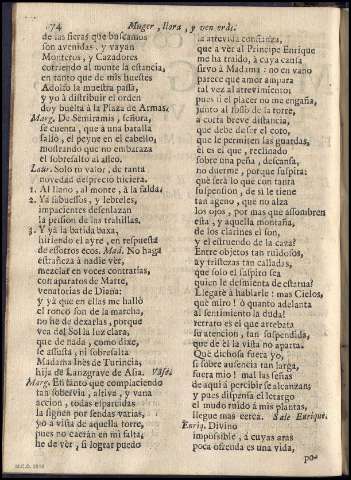 74 Muger, llora, y vencerás.
de las fieras que buscamos
son avenidas, y vayan
Monteros, y Cazadores
corriendo al monte la estancia,
en tanto que de mis huestes
Adolfo la muestra passa,
y yo à distribuir el orden
doy buelta à la Plaza de Armas.
Marg. De Semiramis, señora,
se cuenta, que à una batalla
saliò, el peyne en el cabello,
mostrando que no embaraza
el sobresalto al asseo.
Laur. Solo tu valor, de tanta
novedad desprecio hiciera.
1. Al llano, al monte, à la falda.
2. Ya sabuessos, y lebreles,
impacientes desenlazan
la prision de las trahillas.
3. Y yà la batida baxa,
hiriendo el ayre, en respuesta
de essotros ecos. Mad. No haga
estrañeza à nadie ver,
mezclar en voces contrarias,
con aparatos de Marte,
venatorias de Diana:
y yà que en ellas me hallò
el ronco son de la marcha,
no he de dexarlas, porque
vea del Sol la luz clara,
que de nada, como dixe,
se assusta, ni sobresalta
Madama Inès de Turincia,
hija de Lanzgrave de Asia. Vase.
Marg. En tanto que complaciendo
tan sobervia, altiva, y vana
accion, todas esparcidas
la siguen por sendas varias,
yo à vista de aquella torre,
pues no caeràn en mi falta,
he de ver, si lograr puedo
la atrevida confianza,
que à ver al Principe Enrique
me ha traìdo, à cuya causa
sirvo à Madama: no en vano
parece que amor ampara
tal vez al atrevimiento;
pues si el placer no me engaña,
junto al fosso de la torre,
à corta breve distancia,
que debe de ser el coto,
que le permiten las guardas,
es el que, reclinado
sobre una peña, descansa,
no duerme, porque suspira:
què serà lo que con tanta
suspension, de si le tiene
tan ageno, que no alza
los ojos, por mas que assombren
esta, y aquella montaña,
de los clarines el son,
y el estruendo de la caza?
Entre objetos tan ruidosos,
ay tristezas tan calladas,
que solo el suspiro sea
quien le desmienta de estatua?
Llegarè à hablarle: mas Cielos,
què miro! ò quanto adelanta
al sentimiento la duda!
retrato es el que arrebata
su atencion, tan suspendida,
que de èl la vista no aparta.
Què dichosa fuera yo,
si sobre ausencia tan larga,
fuera mio! mal las señas
de aqui à percibirse alcanzan;
y pues dispensa el letargo
el mudo ruido à mis plantas,
lleguè mas cerca. Sale Enrique.
Enriq. Divino
impossible, à cuyas aras
poca ofrenda es una vida,
po-
M.C.D. 2018